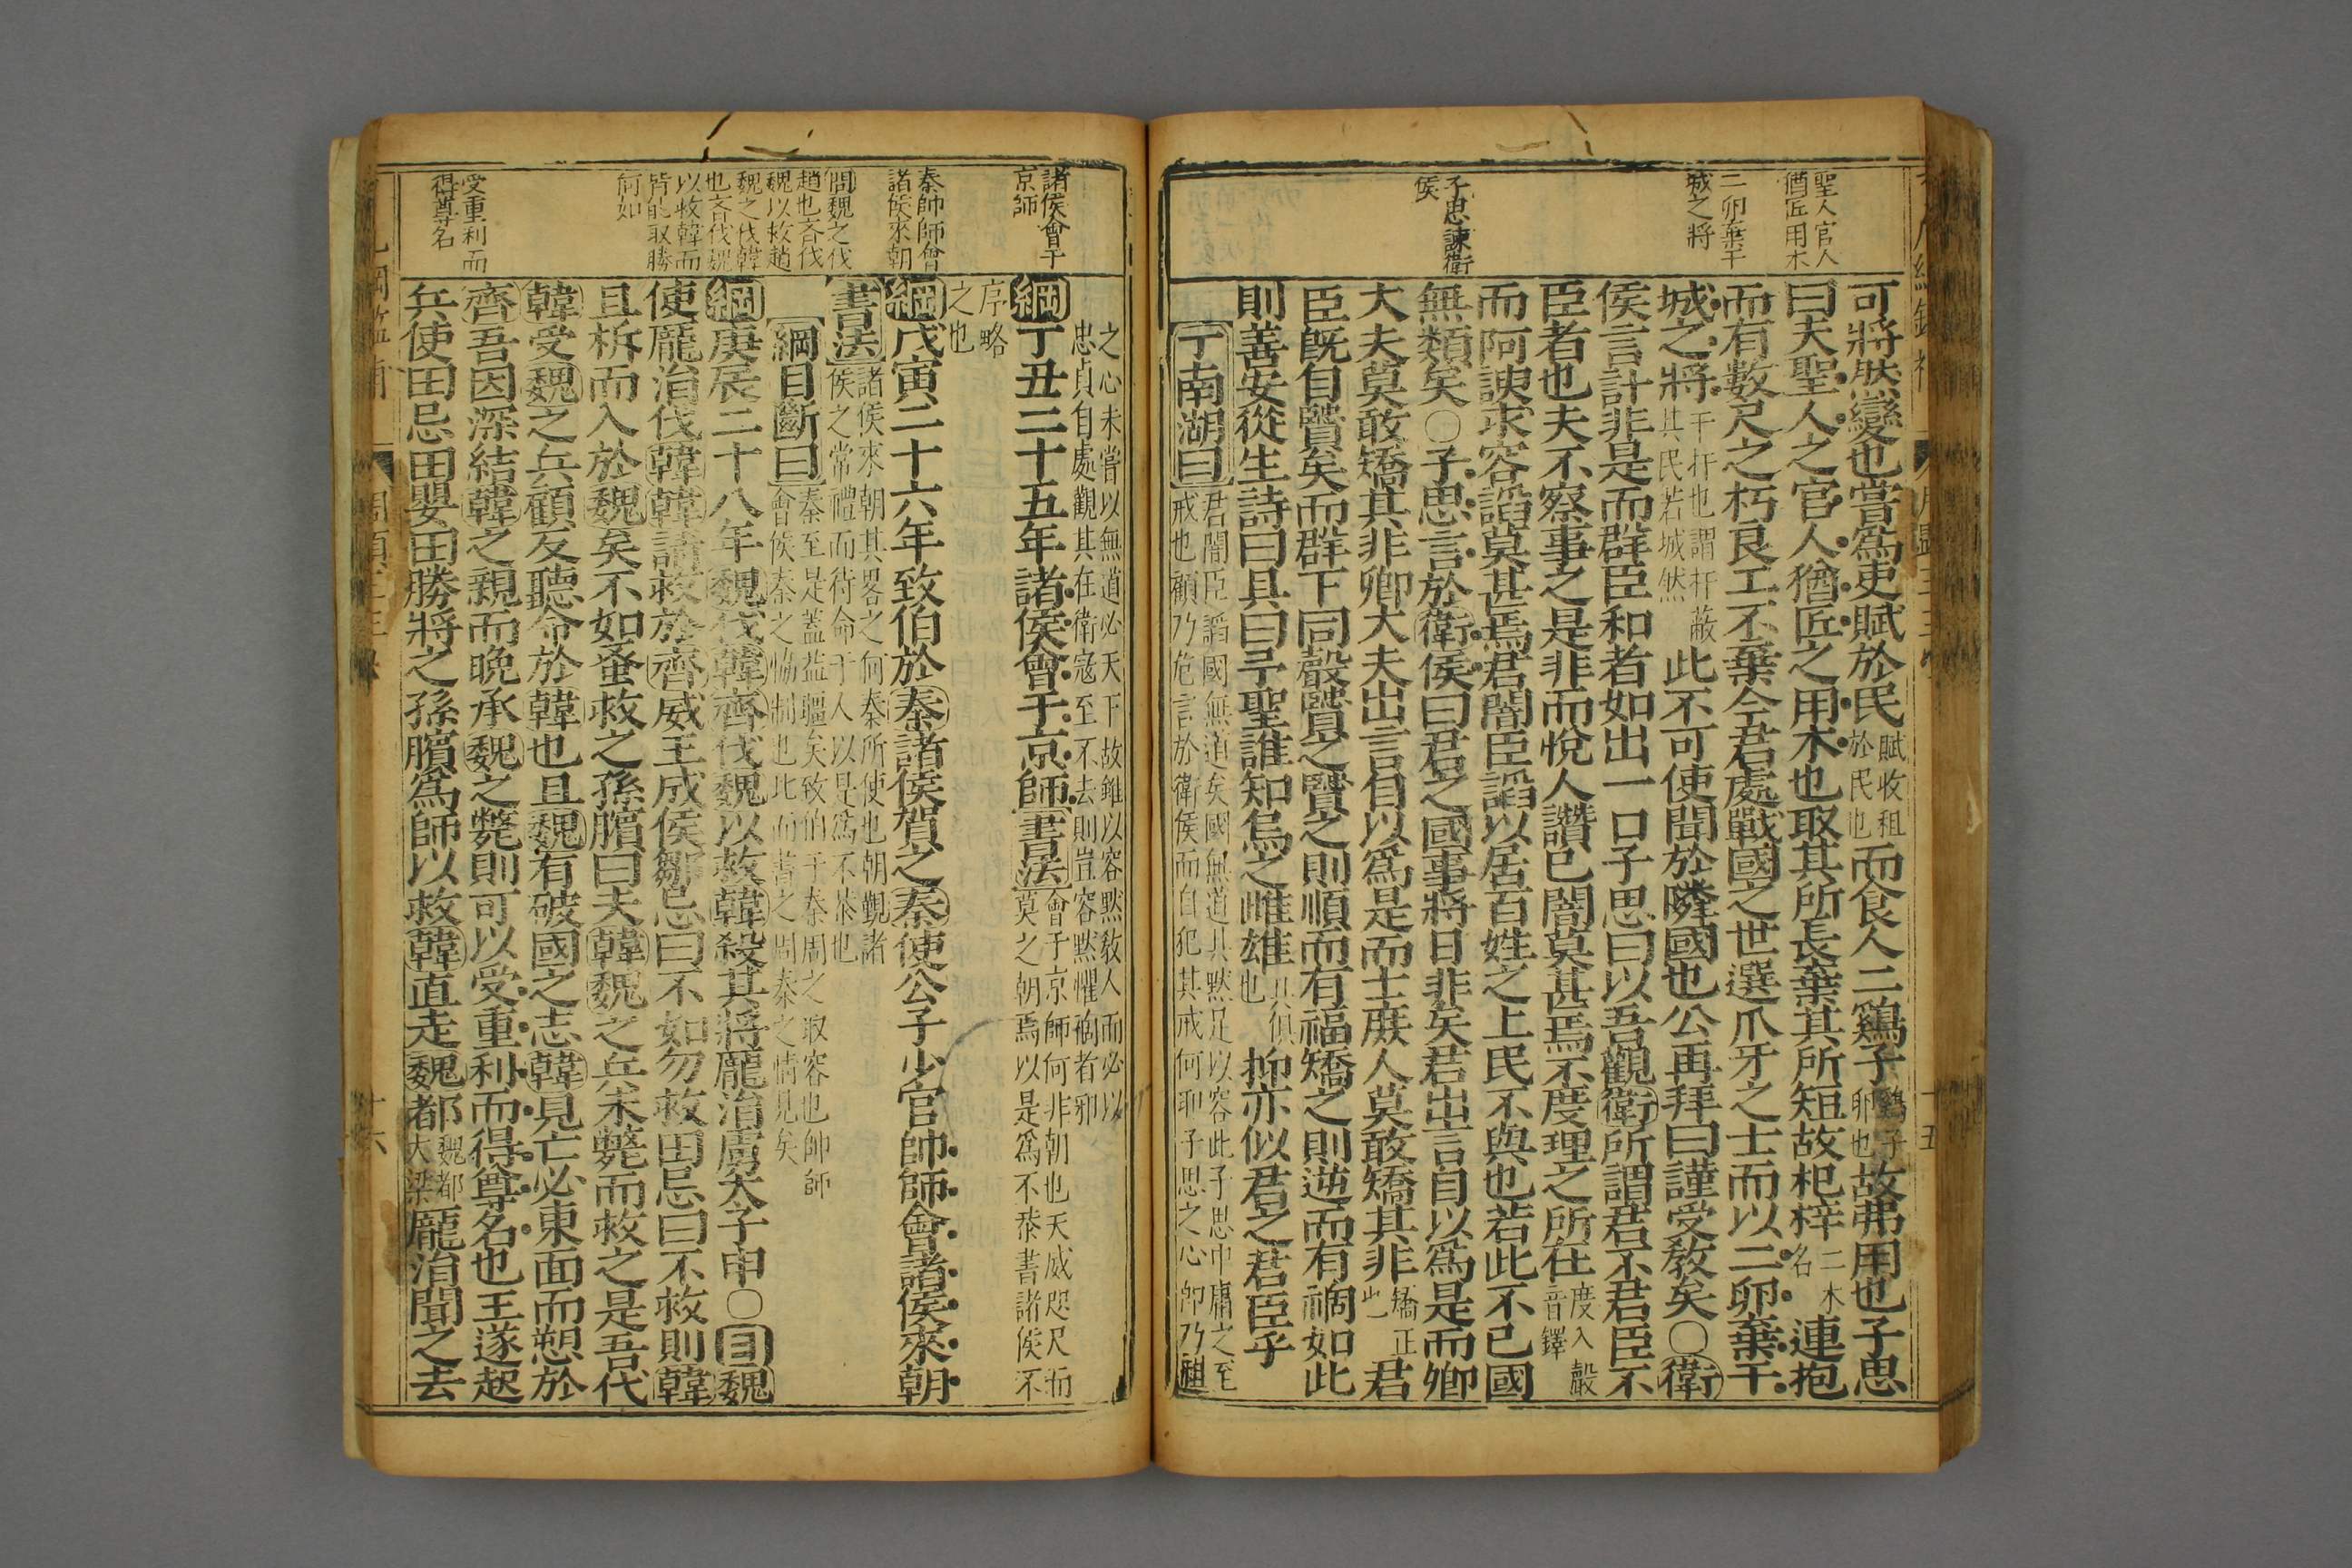 聖人官人
猶匠用木
二卵棄干
城之將
子思諫衛
侯
可將然變也嘗爲吏賦於民賦收租於民也而食人二鷄子鷄子卵也故弗用也子思
曰夫聖人之官人猶匠之用木也取其所長棄其所短故杞梓二木名連抱
而有數尺之朽良工不棄今君處戰國之世選爪牙之士而以二卵棄干
城之將干扞也謂扞蔽其民若城然此不可使聞於隣國也公再拜曰謹受教矣〇衛
侯言計非是而群臣和者如出一口子思曰以吾觀衛所謂君不君臣不
臣者也夫不察事之是非而悅人讚已闇莫甚焉不度理之所在度入聲音鐸
而阿諛求容謟莫甚焉君闇臣謟以居百姓之上民不與也若此不已國
無類矣〇子思言於衛侯曰君之國事將日非矣君出言自以爲是而卿
大夫莫敢矯其非卿大夫出言自以爲是而士庶人莫敢矯其非矯正也君
臣旣自贒矣而群下同聲贒之贒之則順而有福矯之則逆而有禍如此
則善安從生詩曰具曰予聖誰知烏之雌雄具俱也抑亦似君之君臣乎
丁南湖曰君闇臣謟國無道矣國無道其黙足以容此子思中庸之至
戒也顧乃危言於衛侯而自犯其戒何耶子思之心卽乃祖
諸侯會于
京師
秦帥師會
諸侯來朝
問魏之伐
趙也齊伐
魏以救趙
魏之伐韓
也齊伐魏
以救韓而
皆能取勝
何如
受重利而
得尊名
之心未嘗以無道必天下故雖以容黙敎人而必以
忠貞自處觀其在衛寇至不去則豈容黙懼禍者耶
綱丁丑二十五年諸侯會于京師書法會于京師何非朝也天威咫尺而莫之朝焉以是爲不恭書諸侯不
序略
之也
綱戊寅二十六年致伯於秦諸侯賀之秦使公子少官帥師會諸侯來朝
書法諸侯來朝其畧之何秦所使也朝覲諸侯之常禮而待命于人以是爲不恭也
綱目斷曰秦至是蓋益疆矣致伯于秦周之取容也帥師
會侯秦之恊制也比而書之周秦之情見矣
綱庚辰二十八年魏伐韓齊伐魏以救韓殺其將龐涓虜太子申〇目魏
使龐涓伐韓韓請救於齊威王成侯鄒忌曰不如勿救田忌曰不救則韓
且柝而入於魏矣不如蚤救之孫臏曰夫韓魏之兵未斃而救之是吾代
韓受魏之兵顧反聽命於韓也且魏有破國之志韓見亡必東面而愬於
齊吾因深結韓之親而晩承魏之斃則可以受重利而得尊名也王遂起
兵使田忌田嬰田勝將之孫臏爲師以救韓直走魏都魏都大梁龐涓聞之去